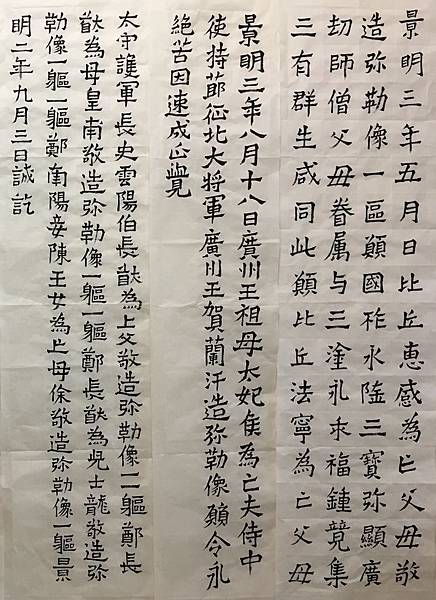 景明三年五月日比丘惠感為亡父母敬
造弥勒像一區願國祚永隆三寶弥顯廣
劫師僧父母眷属与三塗永求福鍾競集
三有群生咸同此願比丘法寧為亡父母
景明三年八月十八日廣州王祖母太妃侯為亡夫侍中
使持莭征北大将軍廣川王賀蘭汗造弥勒像願令永
絶苦因速成正覺
太守護軍長史雲陽伯長猷為亡父敬造弥勒像一軀鄭長
猷為母皇甫敬造弥勒像一軀鄭長猷為兒士龍敬造弥
勒像一軀鄭南陽妾陳王女為亡母徐敬造弥勒像一軀景
明二年九月三日誠訖